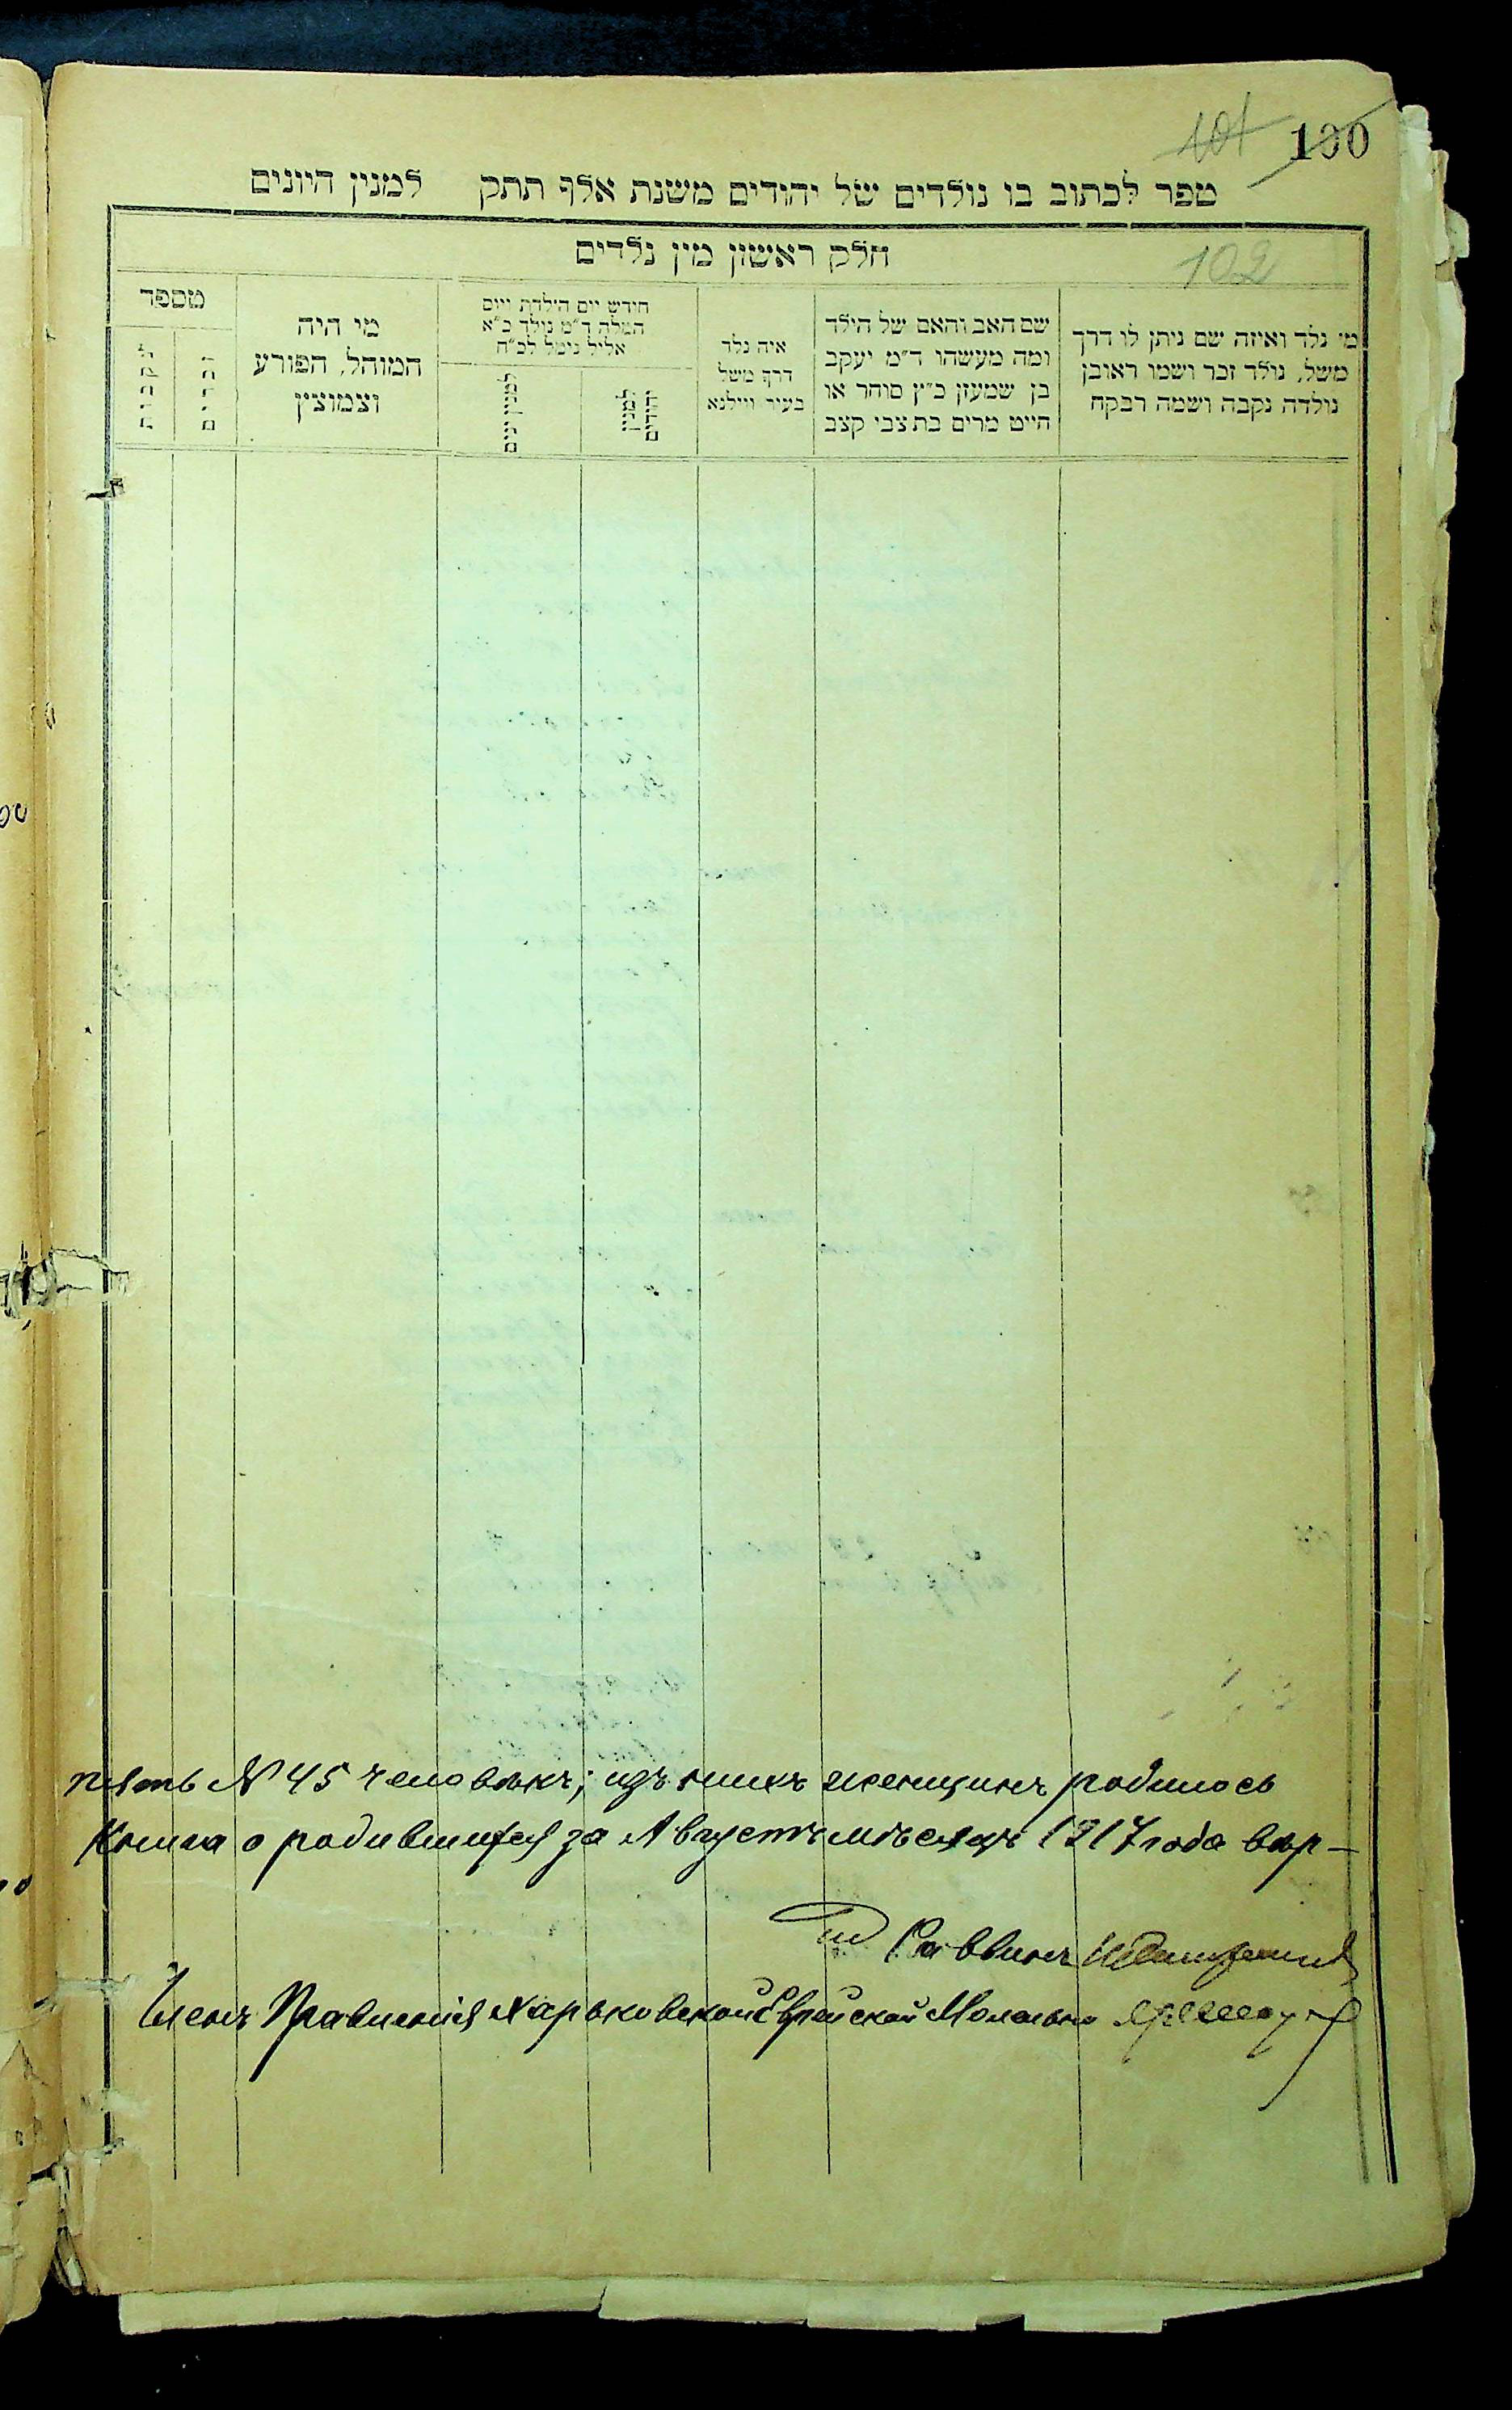 101 130
ספר לכתוב בו נולדים של יהודים משנת אלף תתק למנין היונים
חלק ראשון מין נלדים
102
מי נלד ואיזה שם ניתן לו דרך
משל, נולד זכר ושמו ראובן
נולדה נקבה ושמה רבקה
שם האב והאם של הילד
ומה מעשהו ד״מ יעקב
בן שמעון כ״ץ סוחר או
חייט מרים בת צבי קצב
איה נלד
דרך משל
בעיר ווילנא
חידש יום הילדת ויום
המלה ד״מ נולד כ״א
אליל נימל לכ״ח
למנין יהודים
למנין יונים
מי היה
המוהל, הפורע
וצמוצץ
מספר
זכרים
נקבות
пять № 45 человѣкъ; изъ нихъ женщинъ родилось
Книга о родившихся за Августъ мѣсяцъ 1917 года вѣр-
Раввинъ
Членъ Правленія Харьковской Еврейской Молельни